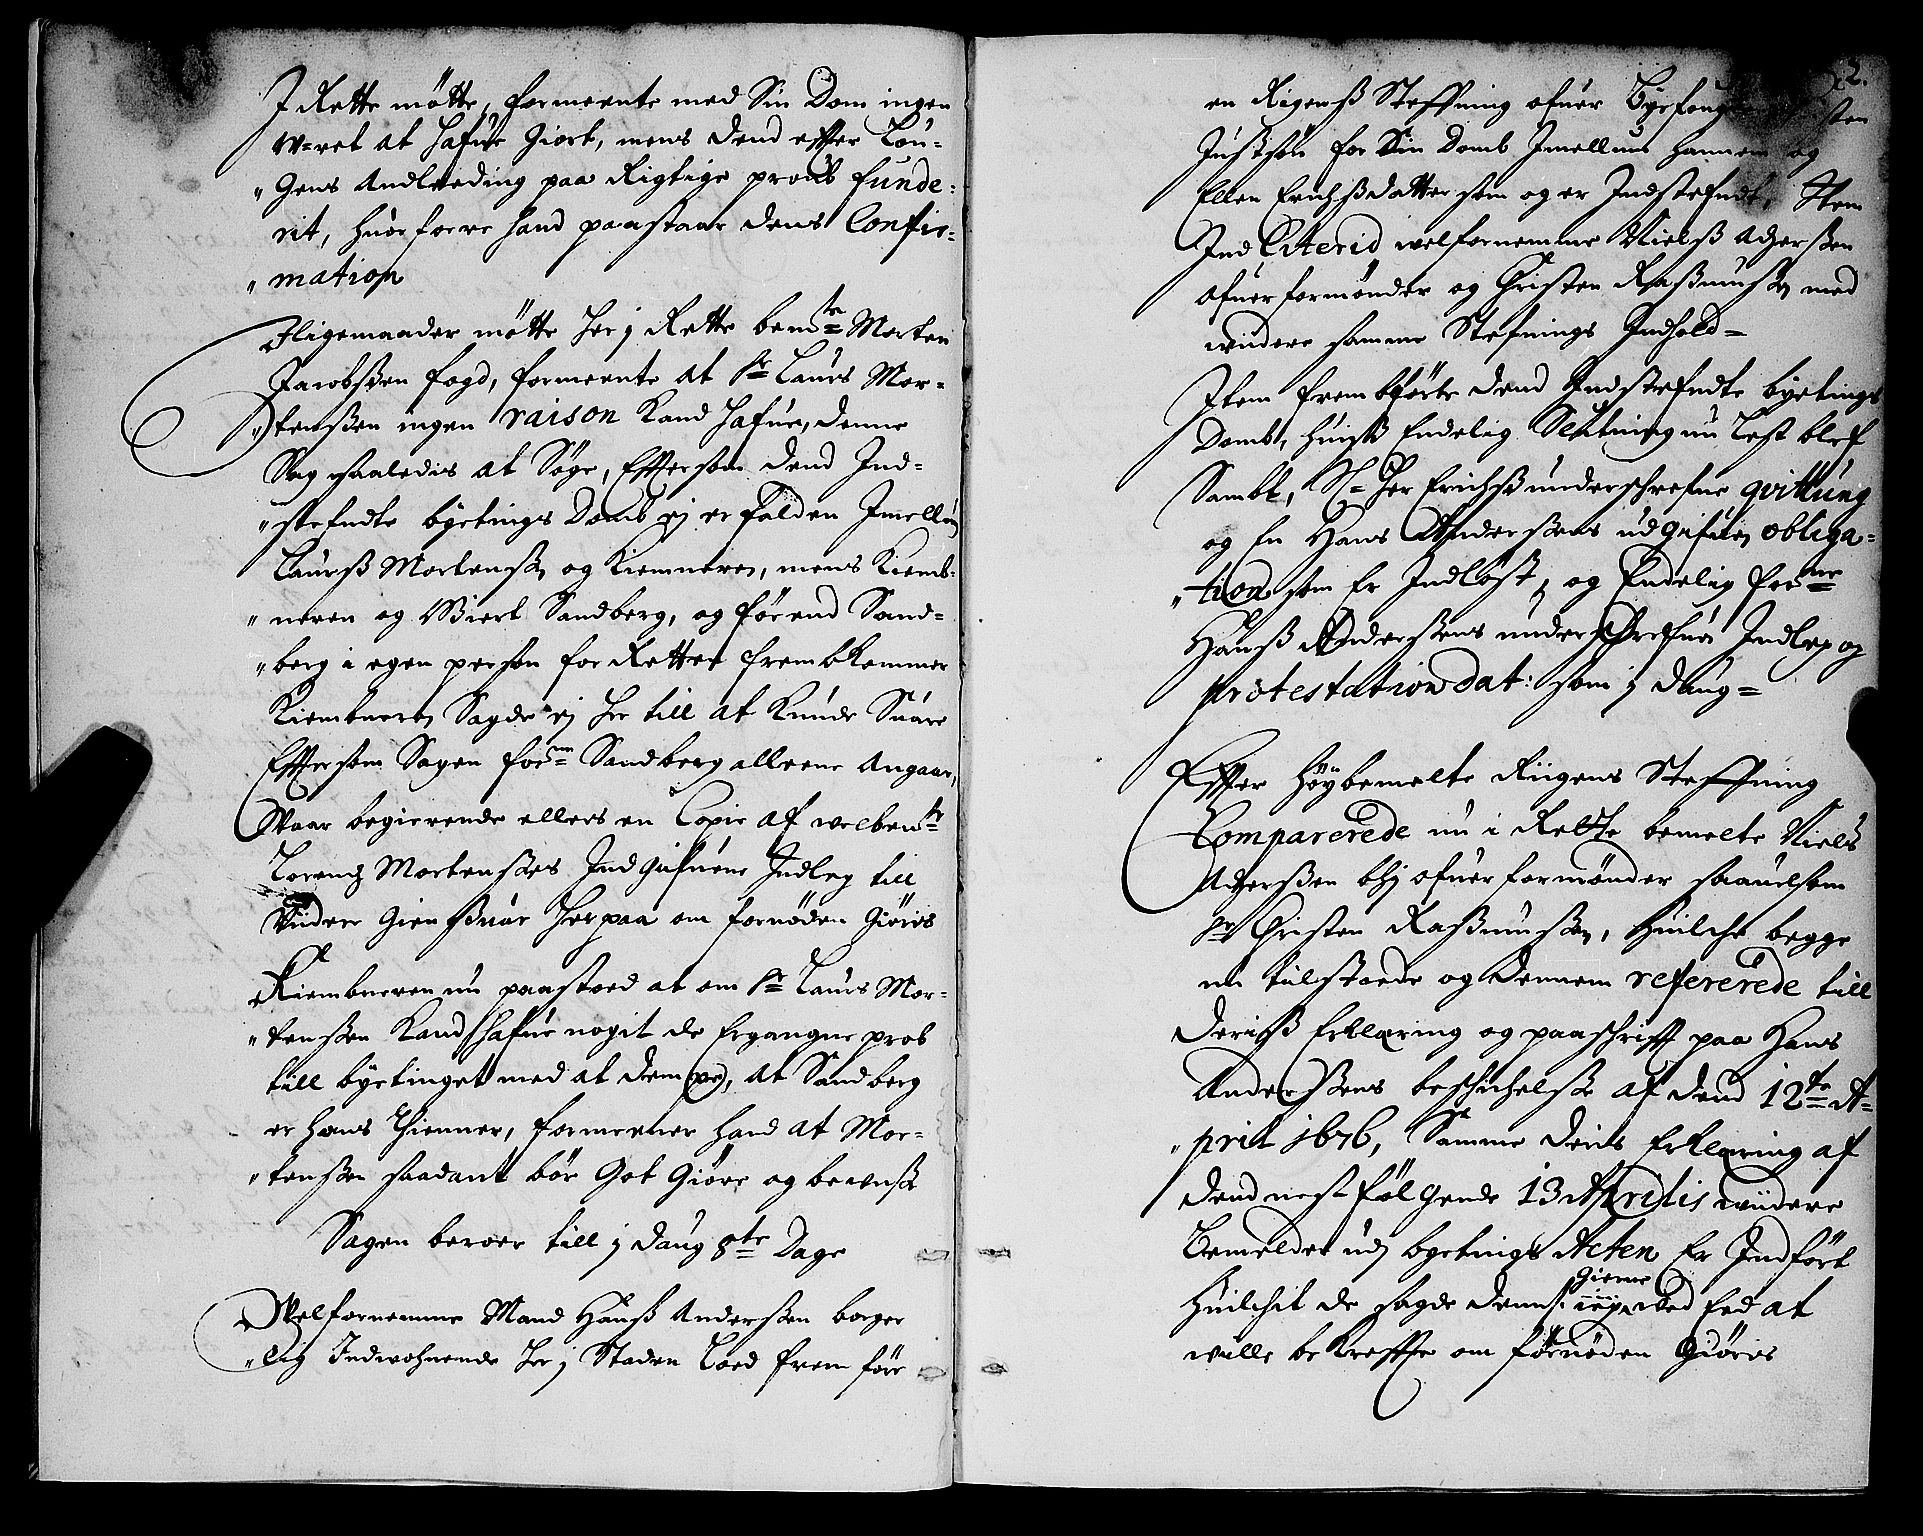 I Rette møtte, formeente med Sin Dom ingen
w-ret at hafue Giort, mens dend effter Lou-
"gens Andleeding paa Rigtige prouf funde-
rit, huorforre hand paastaar dens Confir-
"mation
Iligemaader møtte her j Rette bemte Morten
Jacobsen fogd, formeente at Sr Laurs Mor-
"tensen ingen raison Kand hafue, denne
Sag saaledis at Søge, Effter som dend Ind-
"stefndte byetings Domb ej er falden Imellum
Laurs Mortensen og Kiemneren, mens Kiemb-
"neren og Wiert Sandberg, og førend Sand-
"berg i egen person for Retten frembkommer
Kiembneren Sagde ej her till at Kunde Suare
Effter som Sagen forne Sandberg alleene Angaar,
Waar begierende ellers en Copie af welbemte
Lorentz Mortensens Indgifuene Indleg till
Videre Giensuar herpaa om fornøden Giøris
Kiembneren nu paastoed at om Sr Laurs Mor-
"tensen Kand hafue nogit de Ergangne prob
till byetinget med at dem, at Sandberg
er hans thienner, formeener hand at Mor-
"tensen saadant bør Got Giøre og bewise
Sagen beroer till j daug 8te Dage
Welfornemme Mand Hans Andersen borger
"lig Indwohnende her j Staden Loed frem føre
2.
en Rigens Steffning ofuer Byefong
Justsøn for Sin Domb Imellum hannem og
Ellen Erichsdatter som og er Indstefndt, Item
Ind Citerid welfornemme Niels Adzersen
ofuerformønder og Christen Rasmusen med
widere samme Stefnings Indhold-
Item frembførte dend Indstefndte byetings
Domb, huis Endelig Slutning nu Lest blef
Sambt, Sl. Per Erichs underschrefne qvittung
og En Hans Andersens udgifuen obliga-
"tion som Er Indløst, og Endelig forne
Hans Andersens underschrefne Indleg og
protestation dat: som j daug-
Effter høybemelte Riigens Steffning
Comparerede nu i Rette bemelte Niels
Adzersen bhj ofuerformønder saauelsom
Sr Christen Rasmusen, huilche begge
nu tilstoede og dennem refererede till
deris Erklæring og paaschrifft paa Hans
Andersens beschichelse af dend 12te A-
"prill 1676, Samme deris Erklæring af
dend nest følgende 13 Aprilis widere
bemelder udj byetings Acten Er Indført
huilchit de sagde dennem Gierne wed Eed at
wille bekreffte om fornøden Giøris